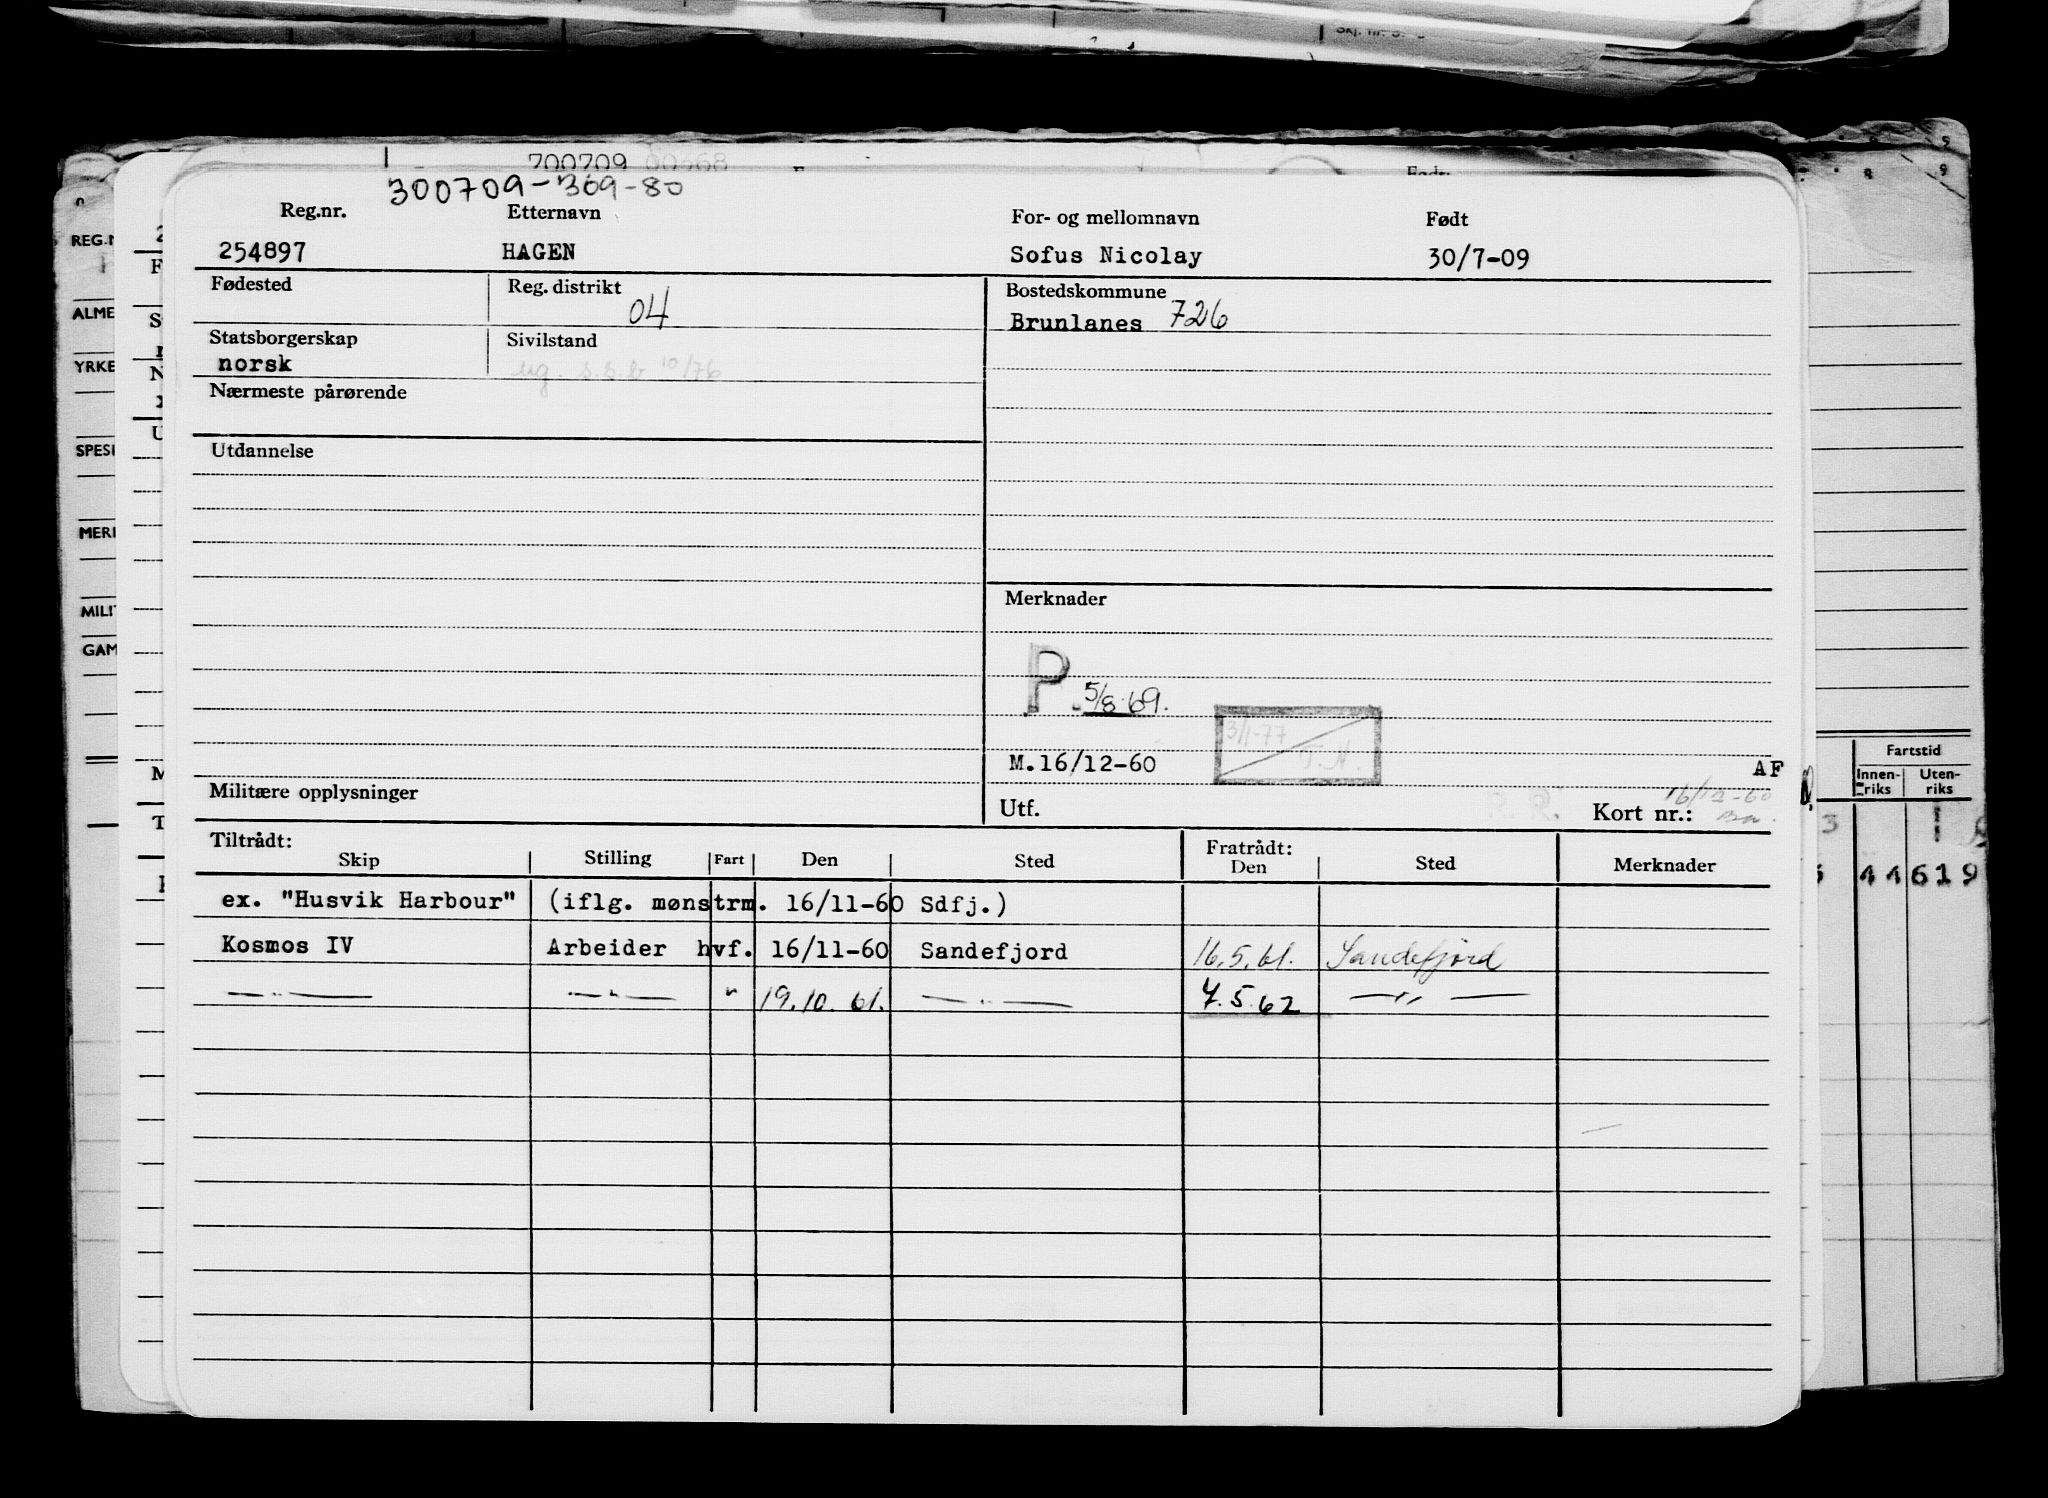 700709 00568
300709-369-80
Reg.nr. Etternavn For- og mellomnavn Født
254897 HAGEN Sofus Nicolay 30/7-09
Fødested Reg. distrikt Bostedskommune
04 Brunlanes 726
Statsborgerskap Sivilstand
norsk ug. s.s.b 10/76
Nærmeste pårørende
Utdannelse
Merknader
P. 5/8.69.
3/1-77
T.N.
M.16/12-60
AF
Militære opplysninger Utf. Kort nr.: 16/12-60
Tiltrådt: Fratrådt:
Skip Stilling Fart Den Sted Den Sted Merknader
ex. "Husvik Harbour" (iflg. mønstrm. 16/11-60 Sdfj.)
Kosmos IV Arbeider hvf. 16/11-60 Sandefjord 16.5.61. Sandefjord
—"— —"— " 19.10.61. —"— 7.5.62 —"—
REG.N
ALME
YRKE
SPESI
MERI
MILIT
GAM
Fartstid
Innen-riks Uten-riks
44 619